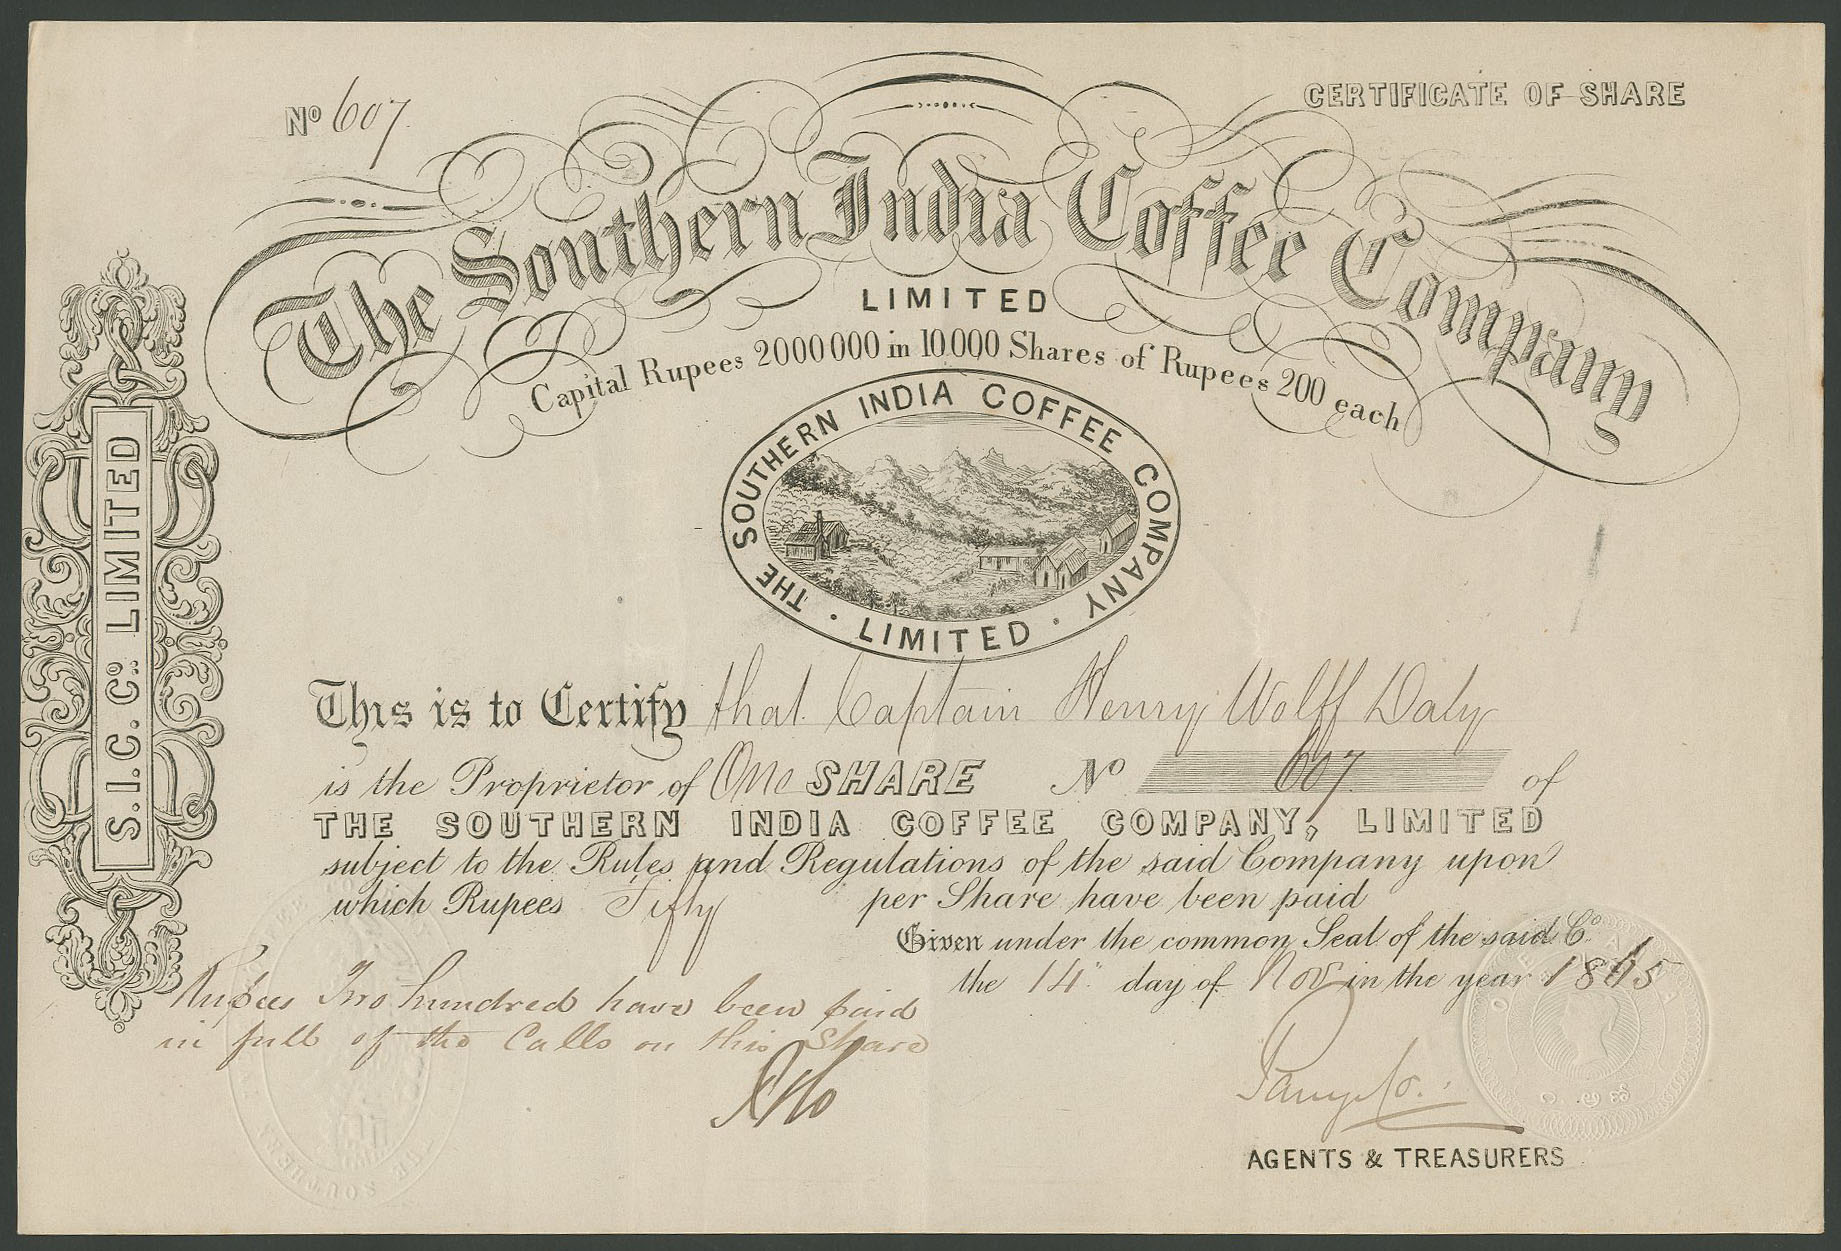 No 607
CERTIFICATE OF SHARE
The Southern India Coffee Company
LIMITED
Capital Rupees 2000000 in 10000 Shares of Rupees 200 each
THE SOUTHERN INDIA COFFEE COMPANY
· LIMITED ·
S.I.C. Co. LIMITED
This is to Certify that Captain Henry Wolff Daly
is the Proprietor of One SHARE No 607 of
THE SOUTHERN INDIA COFFEE COMPANY, LIMITED
subject to the Rules and Regulations of the said Company upon
which Rupees Fifty per Share have been paid
Given under the common Seal of the said Co.
the 14 day of Nov in the year 1865
Rupees Two hundred have been paid
in full of the Calls on this Share
Parry & Co.
AGENTS & TREASURERS